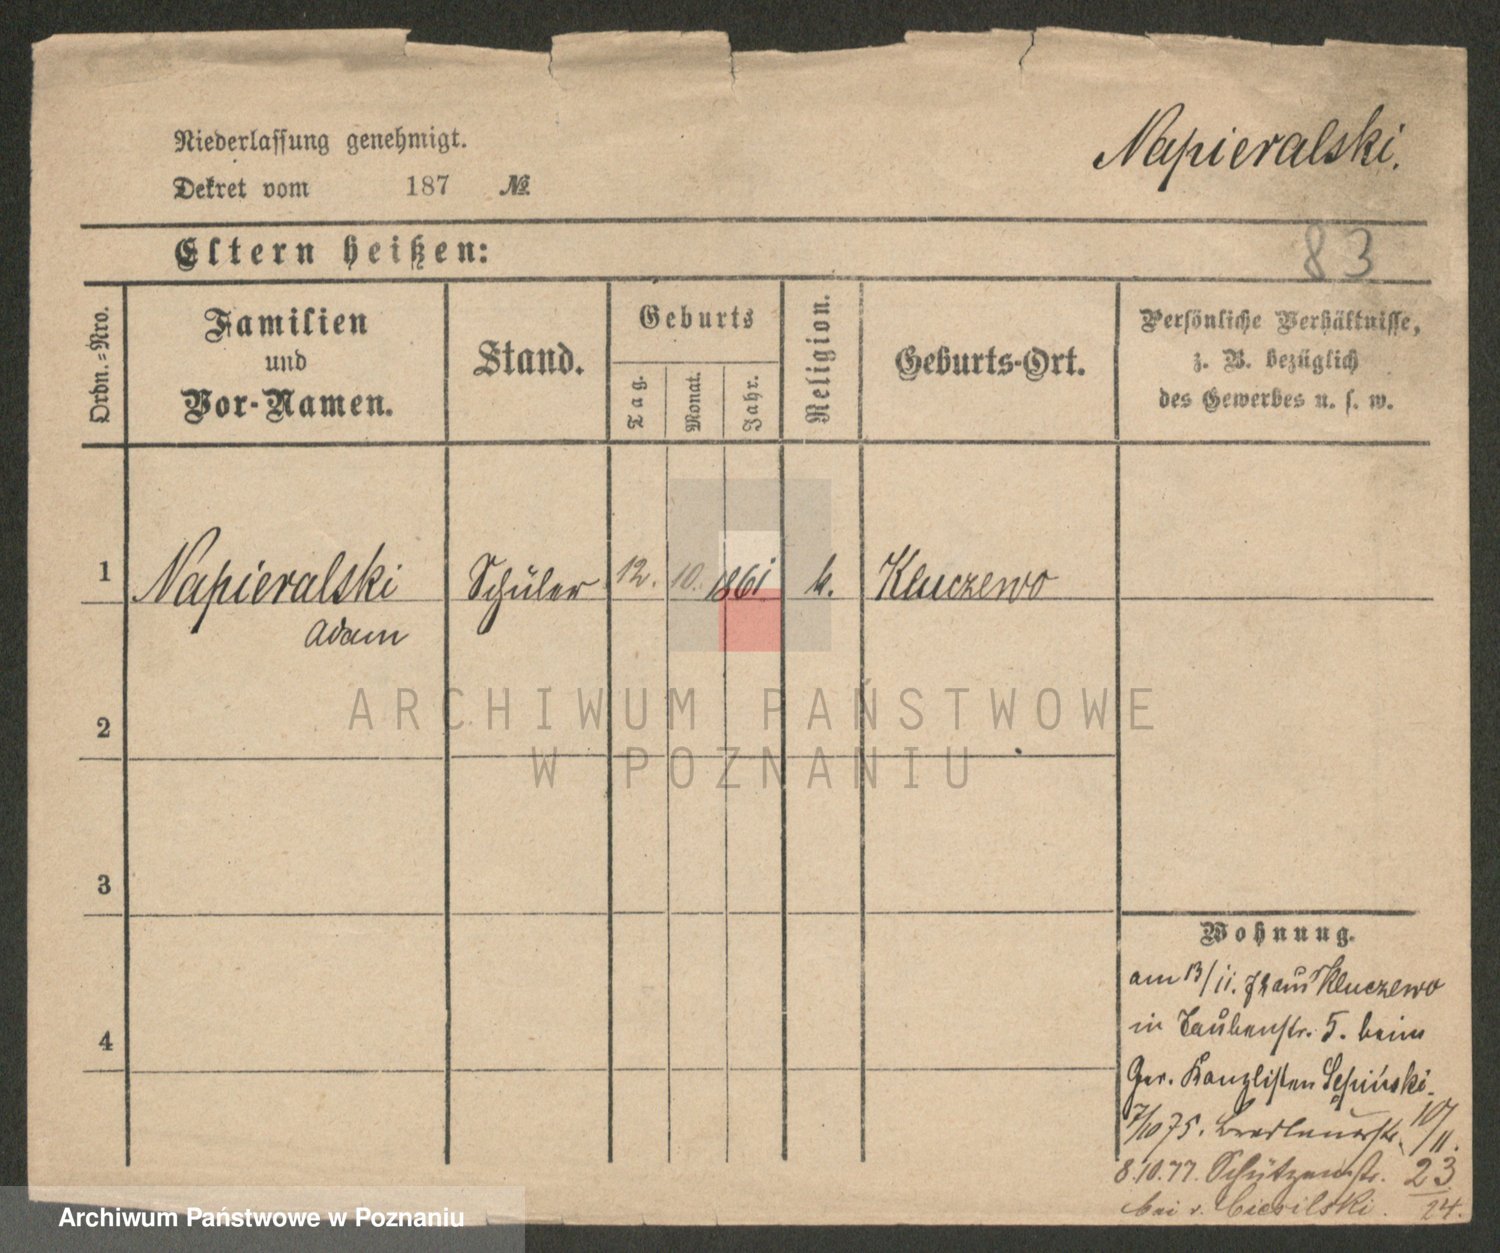 Niederlassung genehmigt.
Dekret vom 187 №
Napieralski.
Eltern heißen:
83
Ordn.-Nro.
Familien
und
Vor-Namen.
Stand.
Geburts
Tag.
Monat.
Jahr.
Religion.
Geburts-Ort.
Persönliche Verhältnisse,
z. B. bezüglich
des Gewerbes u. s. w.
1 Napieralski Schüler 12. 10. 1861 k. Kluczewo
Adam
ARCHIWUM PAŃSTWOWE
W POZNANIU
2
3
4
Wohnung.
am 13/11. 72 aus Kluczewo
in Taubenstr. 5. beim
Ger. Kanzlisten
7/10 75. 10/11.
8.10.77. Schützenstr. 23
bei v. 24.
Archiwum Państwowe w Poznaniu